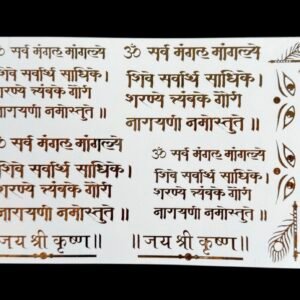 ॐ सर्व मंगल मांगल्ये
शिवे सर्वार्थ साधिके।
शरण्ये त्र्यंबके गौरी
नारायणी नमोस्तुते ॥
ॐ सर्व मंगल मांगल्ये
शिवे सर्वार्थ साधिके।
शरण्ये त्र्यंबके गौरी
नारायणी नमोस्तुते ॥
॥जय श्री कृष्ण॥
ॐ सर्व मंगल मांगल्ये
शिवे सर्वार्थ साधिके।
शरण्ये त्र्यंबके गौरी
नारायणी नमोस्तुते ॥
ॐ सर्व मंगल मांगल्ये
शिवे सर्वार्थ साधिके।
शरण्ये त्र्यंबके गौरी
नारायणी नमोस्तुते ॥
॥जय श्री कृष्ण॥